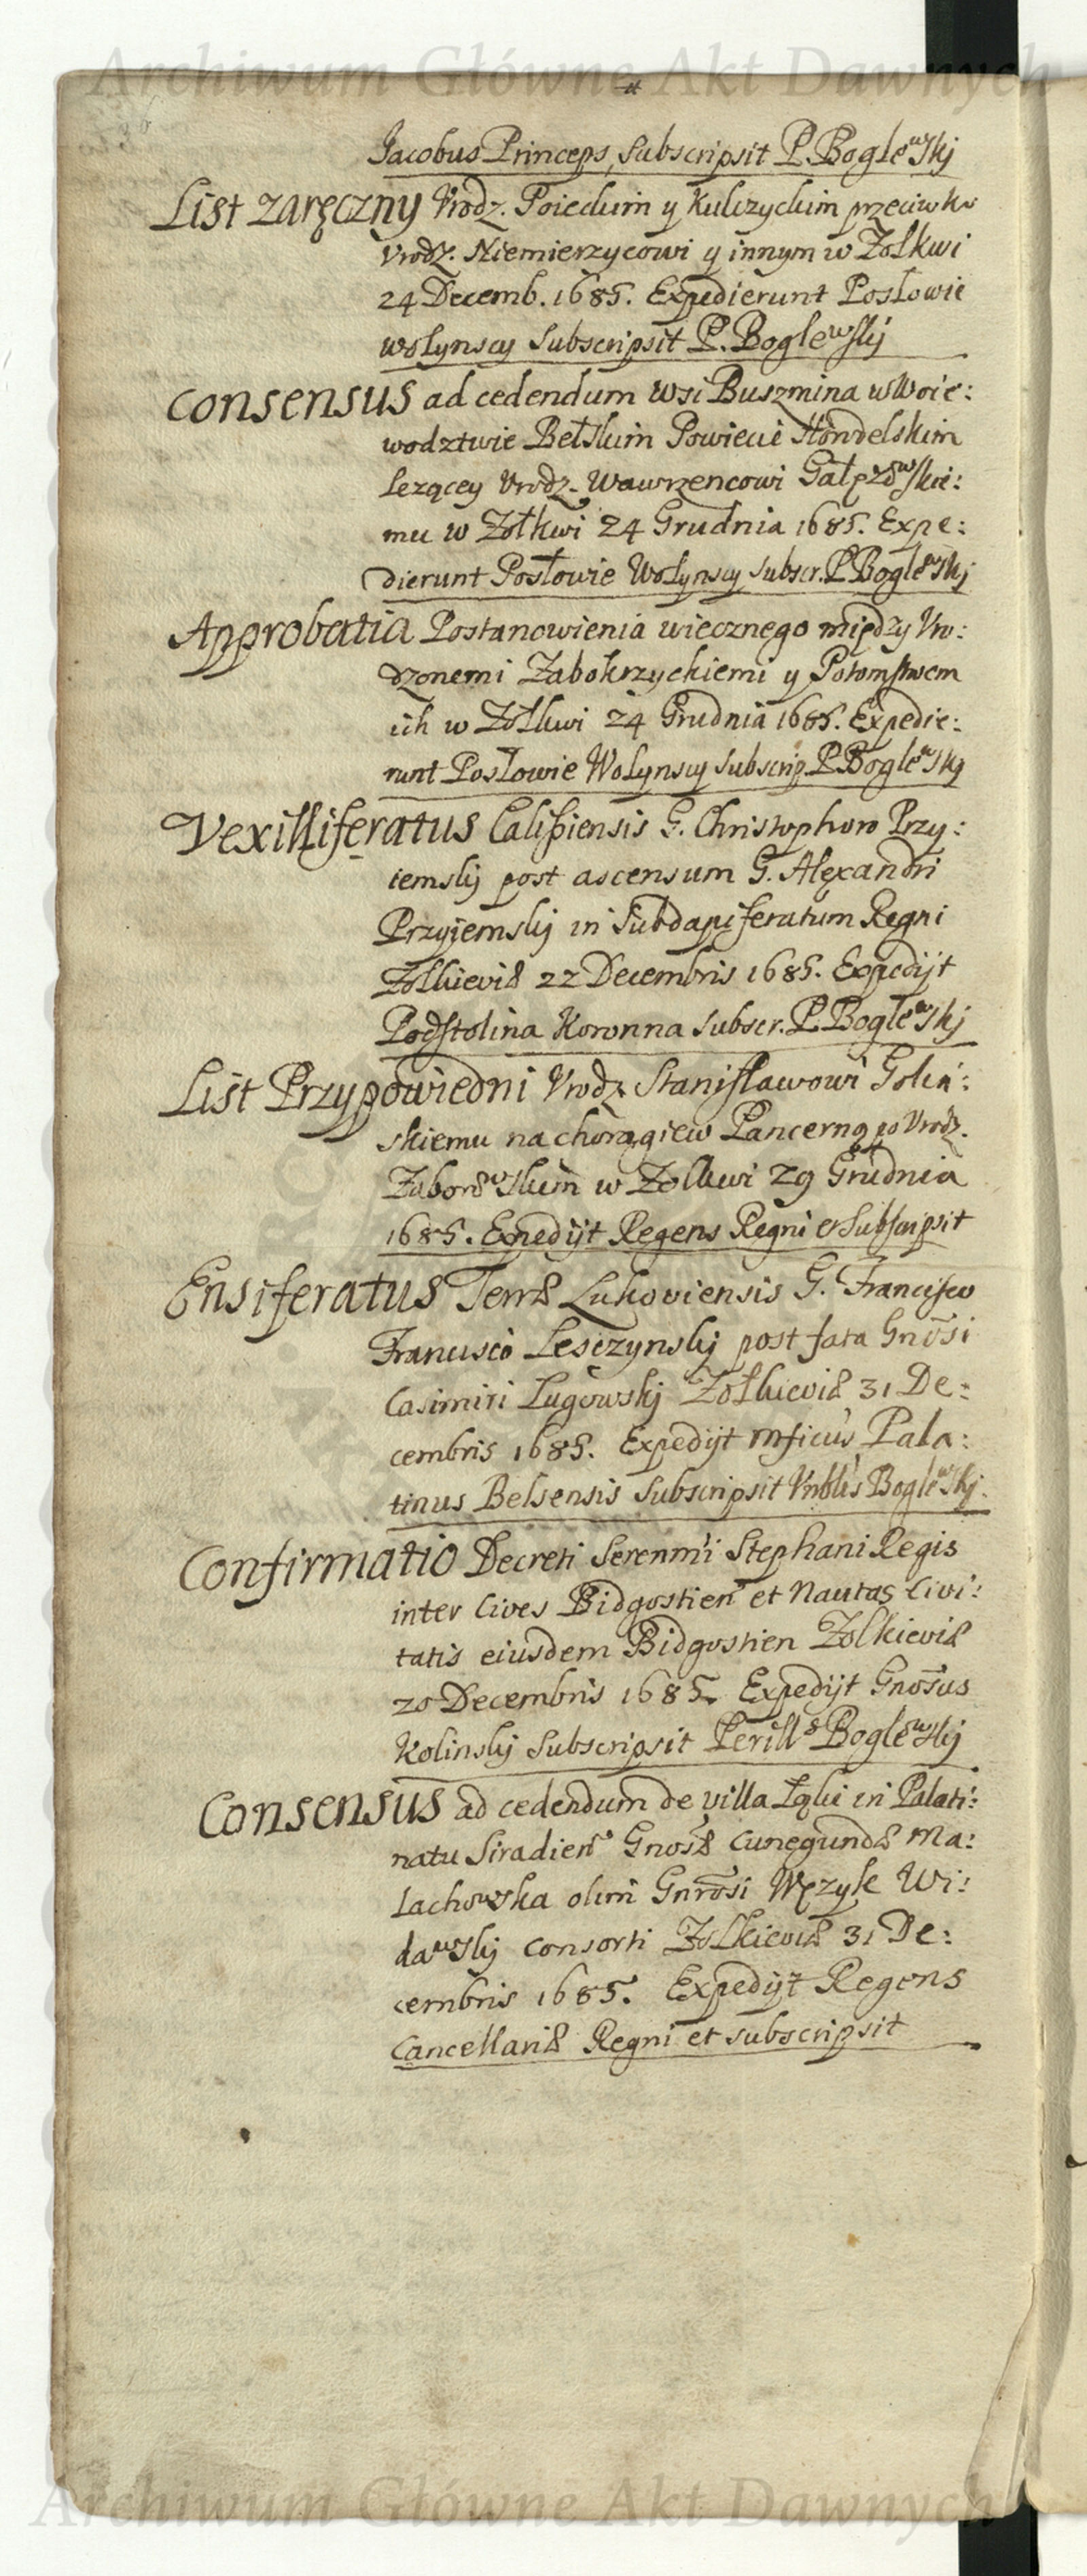 Archiwum Główne Akt Dawnych
Jacobus Princeps, Subscripsit P. Boglewskj
List zaręczny Vrodz. Poieckim y Kulczyckim przeciwko
Vrodz. Niemierzycowi y innym w Zolkwi
24 Decemb. 1685. Expedierunt Posłowie
wołynscy Subscripsit P. Boglewskj
Consensus ad cedendum wsi Buszmina w Woie:
wodztwie Bełskim Powiecie
Lezącey Vrodz. Wawrzencowi
mu w Zołkwi 24 Grudnia 1685. Expe:
dierunt Posłowie Wołynscy subscr. P. Boglewskj
Approbatia Postanowienia wiecznego między Vro:
dzonemi Zabokrzyckiemi y Potomstwem
ich w Zołkwi 24 Grudnia 1685. Expedie:
runt Posłowie Wołynscy subscrip P. Boglewskj
Vexilliferatus Calissiensis G. Christophoro Przy:
iemskj post ascensum G. Alexandri
Przyiemskj in Subdapiferatum Regni
Zolkieviæ 22 Decembris 1685. Expedijt
Podstolina Koronna subscr. P. Boglewskj
List Przypowiedni Vrodz. Stanisławowi Goliń:
skiemu na chorągiew Pancerną po Vrodz.
Zaborowskim w Zolkwi 29 Grudnia
1685. Expedijt Regens Regni et Subscripsit
Ensiferatus Terræ Lukoviensis G. Francisco
Francisco Lesczynskj post fata Gnosi
Casimiri Ługowskj Zołkieviæ 31 De:
cembris 1685. Expedijt mficus Pala:
tinus Belsensis Subscripsit Vnblis Boglewskj.
Confirmatio Decreti Serenmi Stephani Regis
inter Cives Bidgostien et Nautas Civi:
tatis eiusdem Bidgostien Zolkieviæ
20 Decembris 1685. Expedijt Gnosus
Kolinskj Subscripsit Perills Boglewskj
Consensus ad cedendum de villa Łąki in Palati:
natu Siradien Gnosæ Cunegundæ Ma:
lachowska olim Gnrosi Wężyk Wi:
dawskj consorti Zolkieviæ 31 De:
cembris 1685. Expedijt Regens
Cancellariæ Regni et subscripsit
Archiwum Główne Akt Dawnych